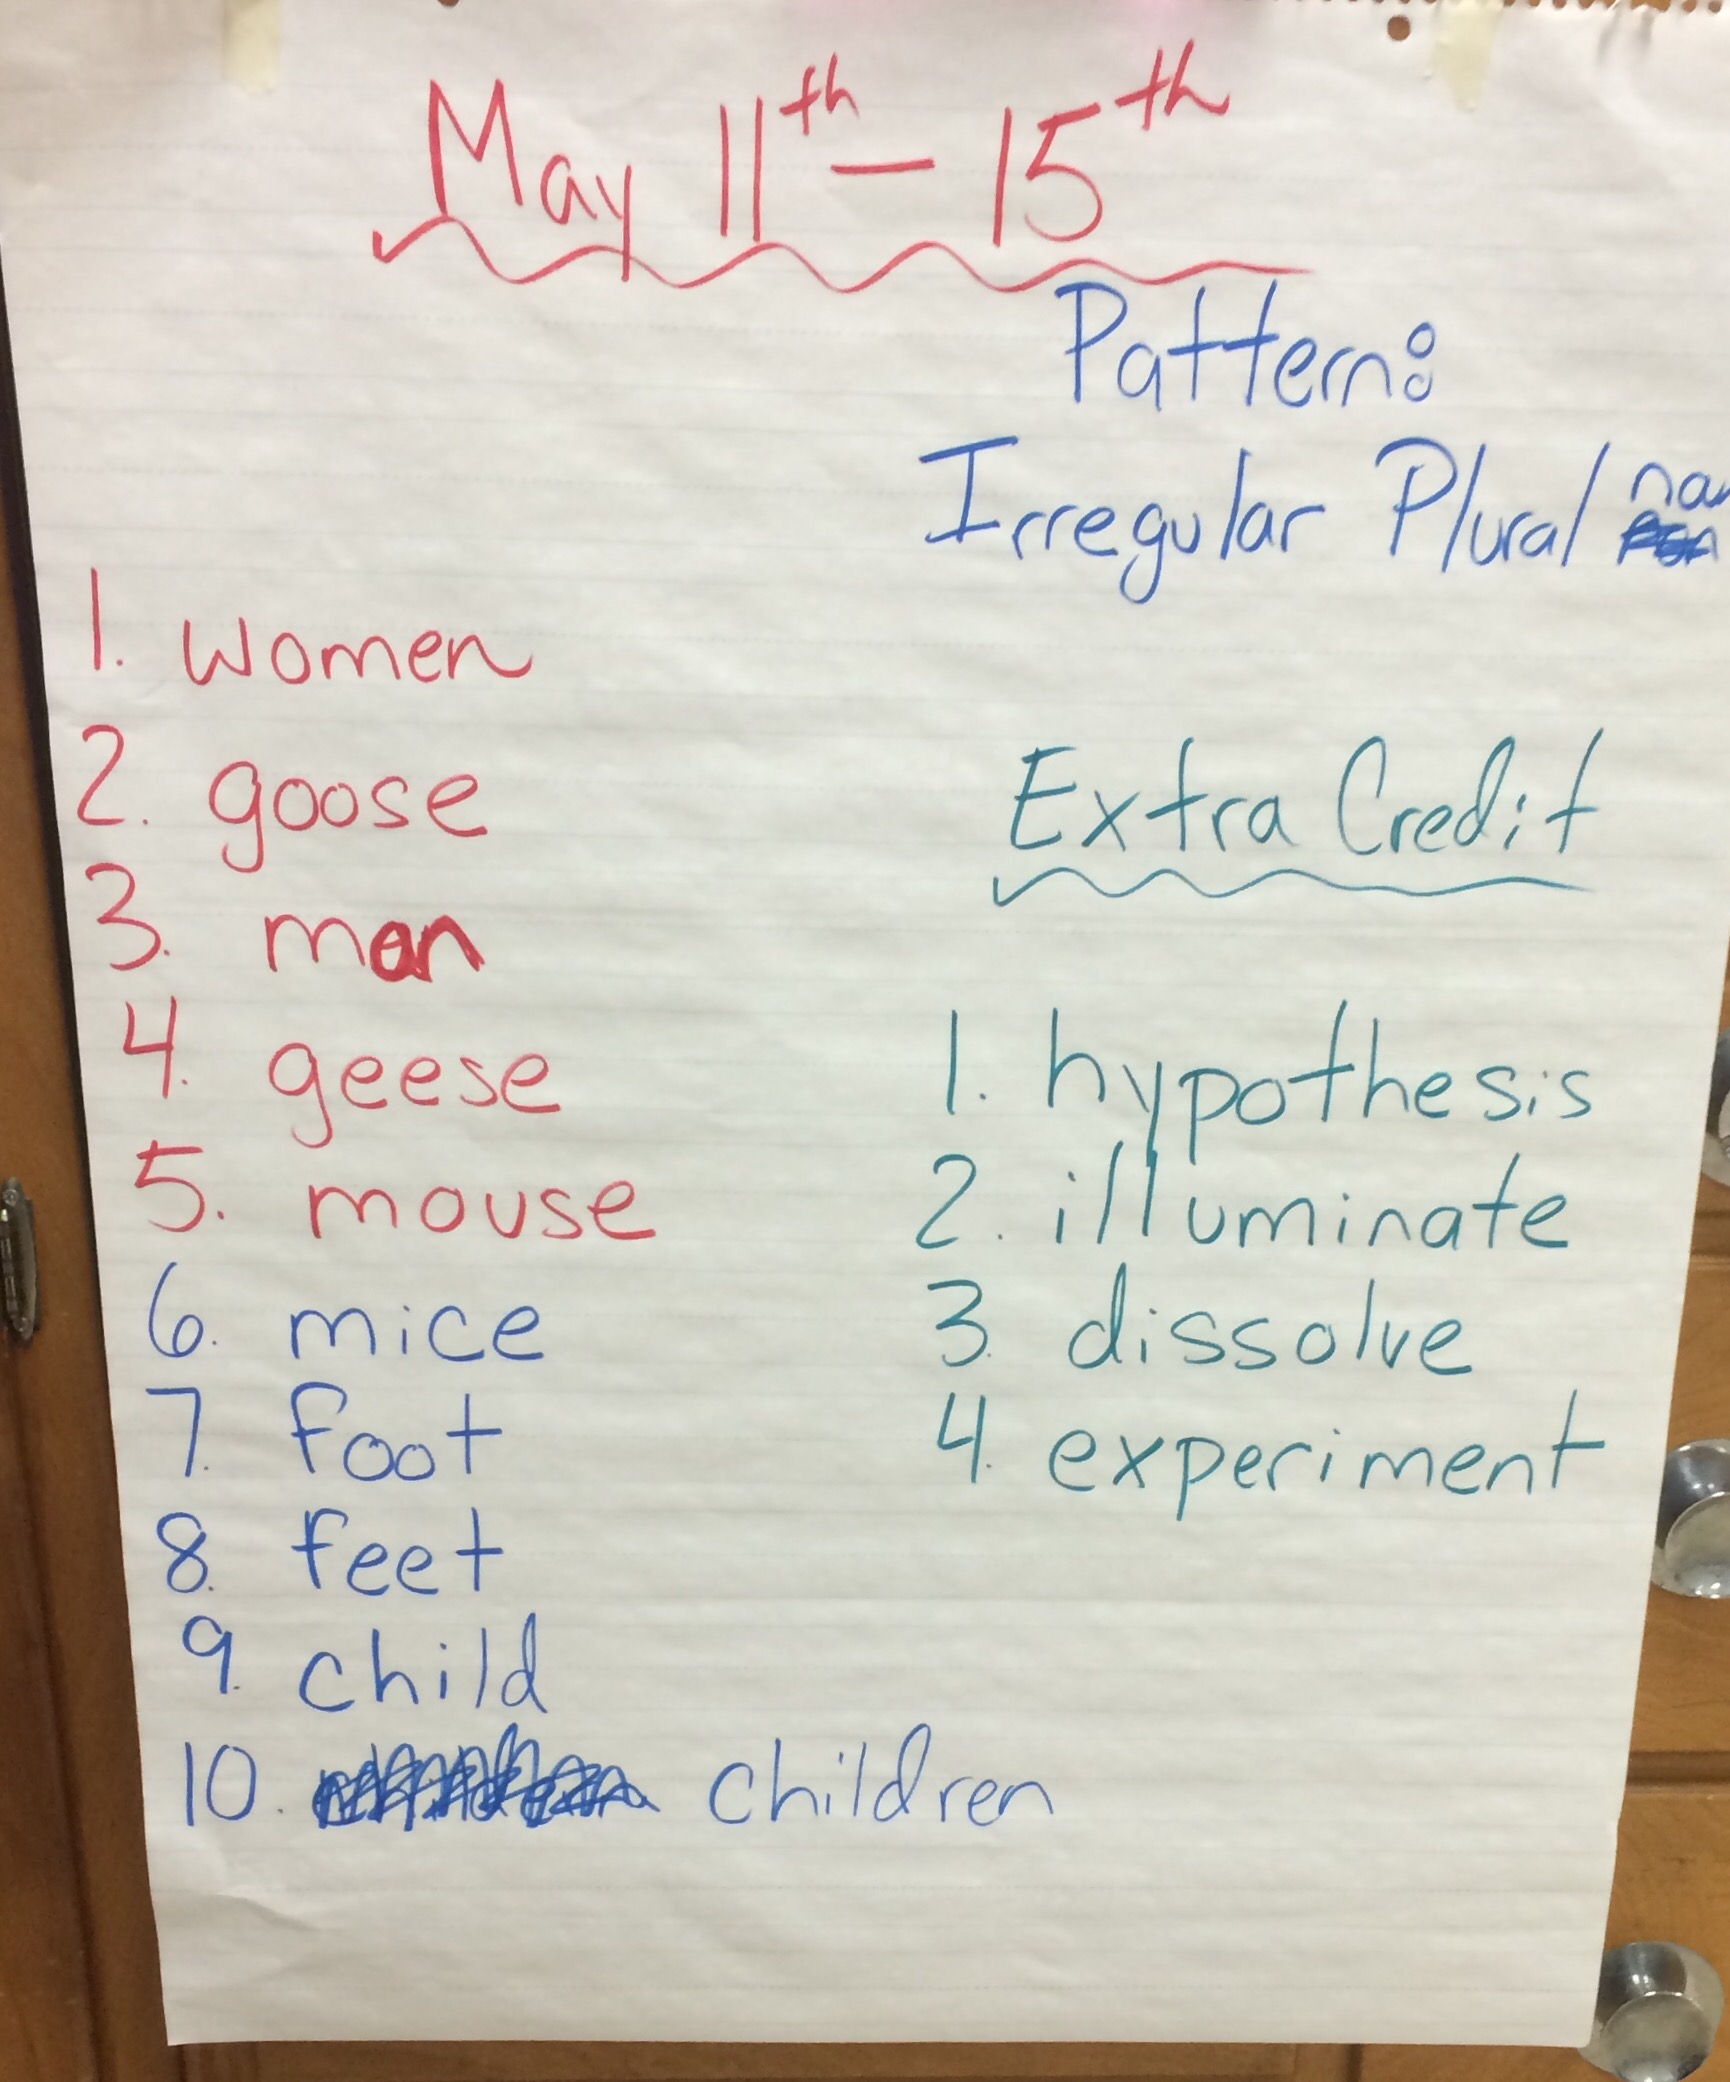 May 11th - 15th
Pattern:
Irregular Plural
1. women
2. goose
3. man
4. geese
5. mouse
6. mice
7. foot
8. feet
9. child
10. children
Extra Credit
1. hypothesis
2. illuminate
3. dissolve
4. experiment